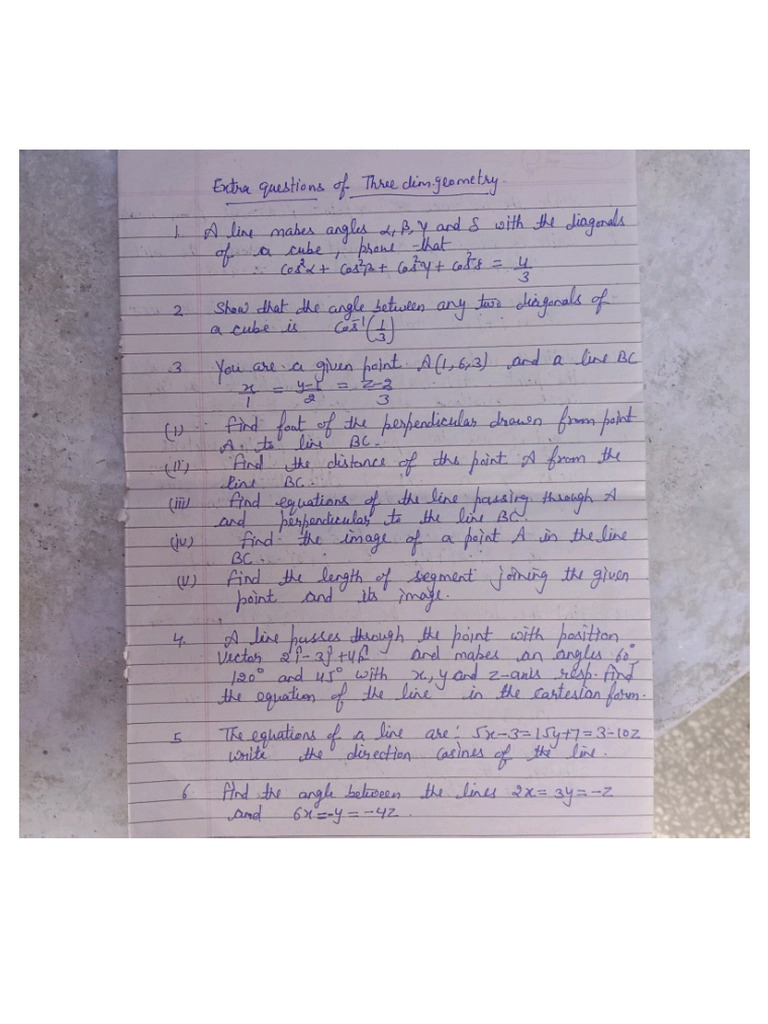 Extra questions of Three dim.geometry.
1. A line makes angles α, β, γ and δ with the diagonals
of a cube, prove that
cos²α + cos²β + cos²γ + cos²δ = 4/3
2 Show that the angle between any two diagonals of
a cube is cos⁻¹(1/3)
3 You are a given point A(1,6,3) and a line BC
x/1 = y-1/2 = z-2/3
(i) Find foot of the perpendicular drawn from point
A. to line BC.
(ii) Find the distance of the point A from the
line BC.
(iii) Find equations of the line passing through A
and perpendicular to the line BC.
(iv) Find the image of a point A in the line
BC.
(v) Find the length of segment joining the given
point and its image.
4. A line passes through the point with position
Vector 2î-3ĵ+4k̂ and makes an angles 60°,
120° and 45° with x, y and z-axis resp. Find
the equation of the line in the cartesian form.
5 The equations of a line are: 5x-3=15y+7=3-10z
write the direction cosines of the line.
6 Find the angle between the lines 2x=3y=-z
and 6x=-y=-4z.